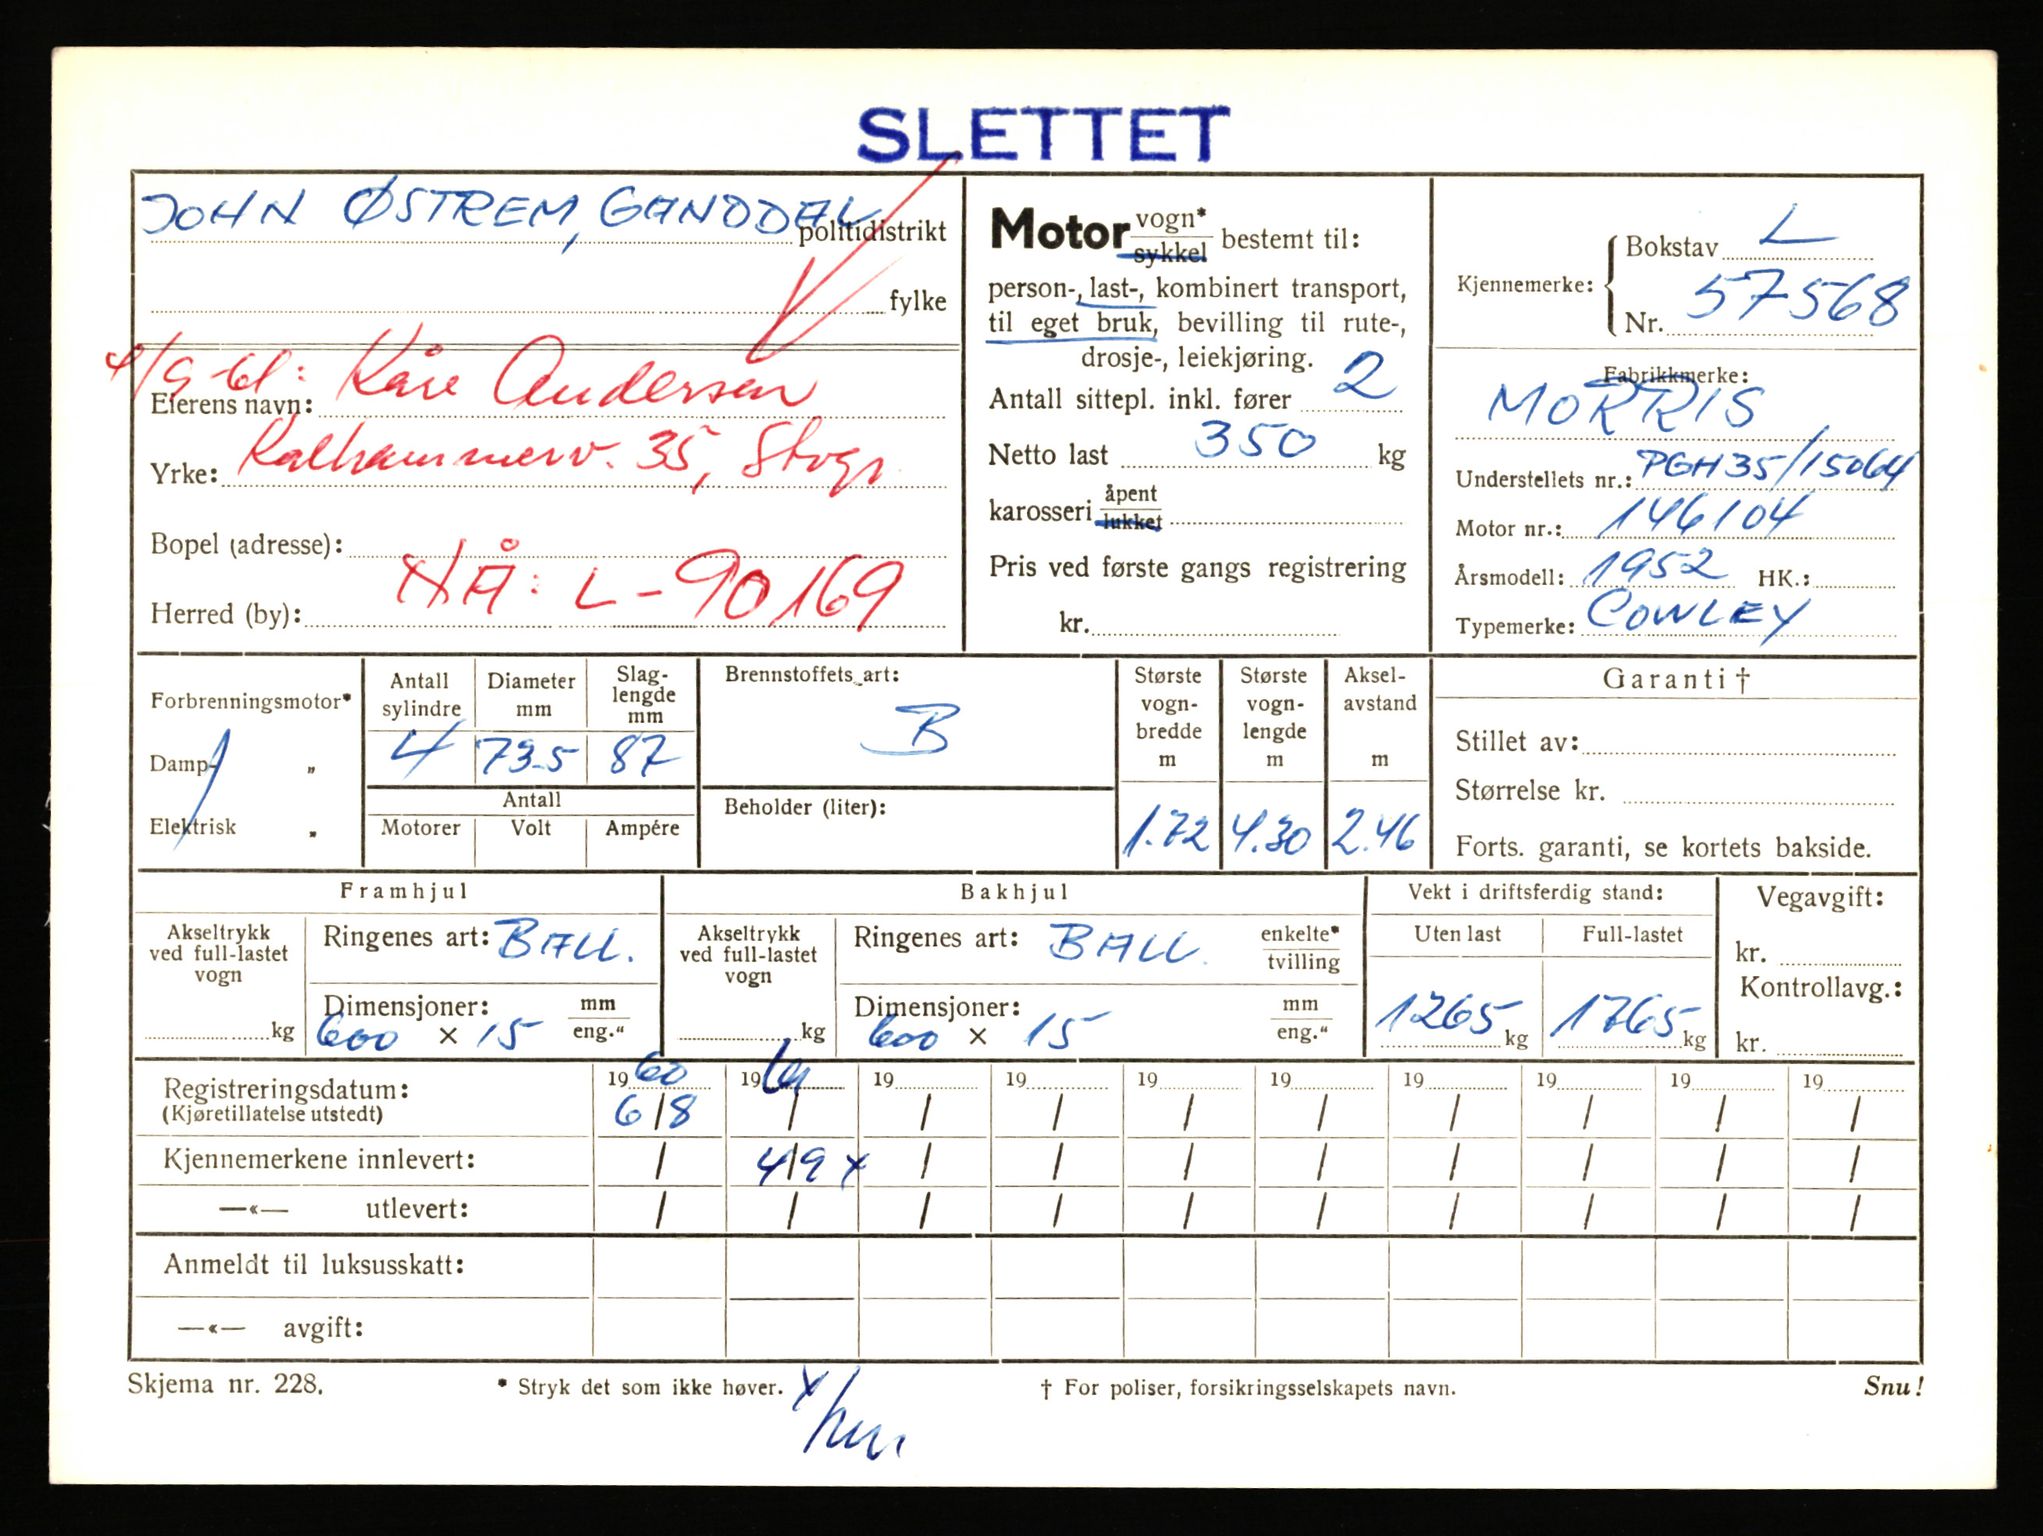 SLETTET
JOHN ØSTREM, GANDDAL politidistrikt
fylke
4/9-61: Kåre Andersen
Eierens navn:
Kalhammerv. 35, Stvgr
Yrke:
Bopel (adresse):
NÅ: L-90169
Herred (by):
Motor vogn* / sykkel bestemt til:
person-, last-, kombinert transport,
til eget bruk, bevilling til rute-,
drosje-, leiekjøring.
Antall sittepl. inkl. fører 2
Netto last 350 kg
karosseri åpent / lukket
Pris ved første gangs registrering
kr.
Kjennemerke: Bokstav L
Nr. 57568
Fabrikkmerke:
MORRIS
Understellets nr.: PGH35/15064
Motor nr.: 146104
Årsmodell: 1952 HK.:
Typemerke: COWLEY
Forbrenningsmotor*
Damp- „
Elektrisk „
Antall sylindre Diameter mm Slag-lengde mm
4 73.5 87
Antall
Motorer Volt Ampére
Brennstoffets art:
B
Beholder (liter):
Største vogn-bredde m Største vogn-lengde m Aksel-avstand m
1.72 4.30 2.46
Garanti †
Stillet av:
Størrelse kr.
Forts. garanti, se kortets bakside.
Framhjul
Akseltrykk ved full-lastet vogn
kg
Ringenes art: BALL.
Dimensjoner: mm / eng."
600 × 15
Bakhjul
Akseltrykk ved full-lastet vogn
kg
Ringenes art: BALL. enkelte* / tvilling
Dimensjoner: mm / eng."
600 × 15
Vekt i driftsferdig stand:
Uten last Full-lastet
1265 kg 1765 kg
Vegavgift:
kr.
Kontrollavg.:
kr.
Registreringsdatum: 1960 1961 19 19 19 19 19 19 19 19
(Kjøretillatelse utstedt) 6/8 / / / / / / / / /
Kjennemerkene innlevert: / 4/9 x / / / / / / / /
—«— utlevert: / / / / / / / / / /
Anmeldt til luksusskatt:
—«— avgift:
Skjema nr. 228. * Stryk det som ikke høver. † For poliser, forsikringsselskapets navn. Snu!